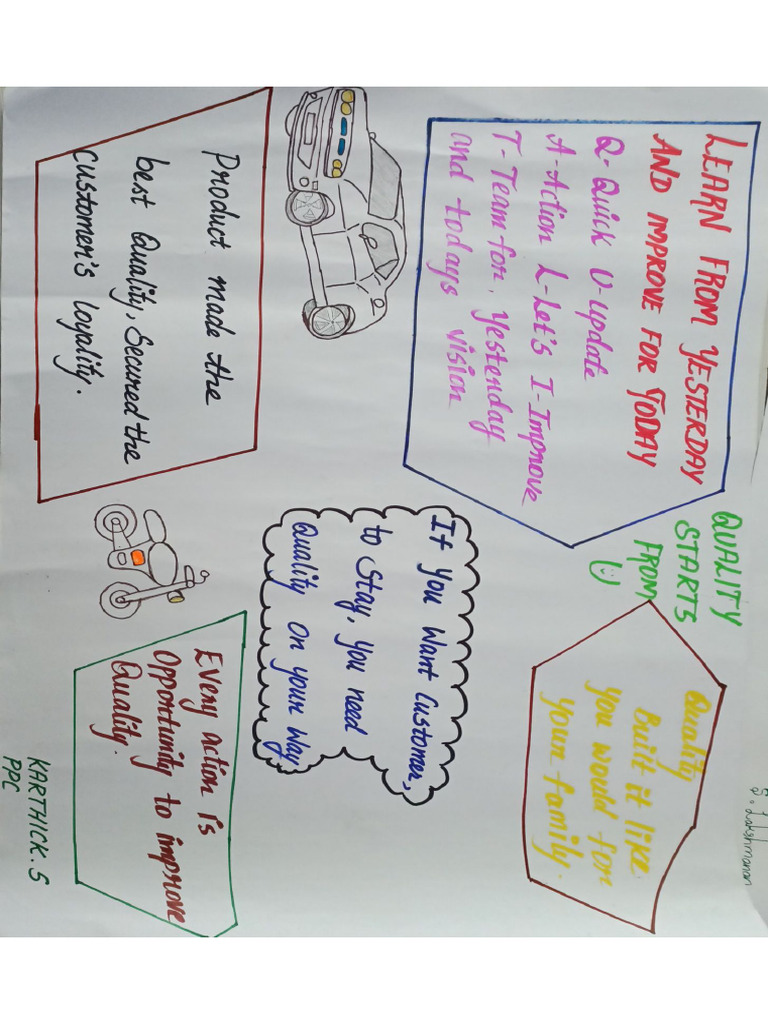 LEARN FROM YESTERDAY
AND IMPROVE FOR TODAY
Q- Quick U-update
A-Action L-Let's I-Improve
T-Team for, Yesterday
and todays vision
QUALITY
STARTS
FROM
Quality
Built it like
you would for
your family.
If you Want Customer,
to Stay, you need
Quality on your Way
Product made the
best Quality, Secured the
Customer's loyality.
Every action is
Opportunity to improve
Quality.
KARTHICK.S
PPC